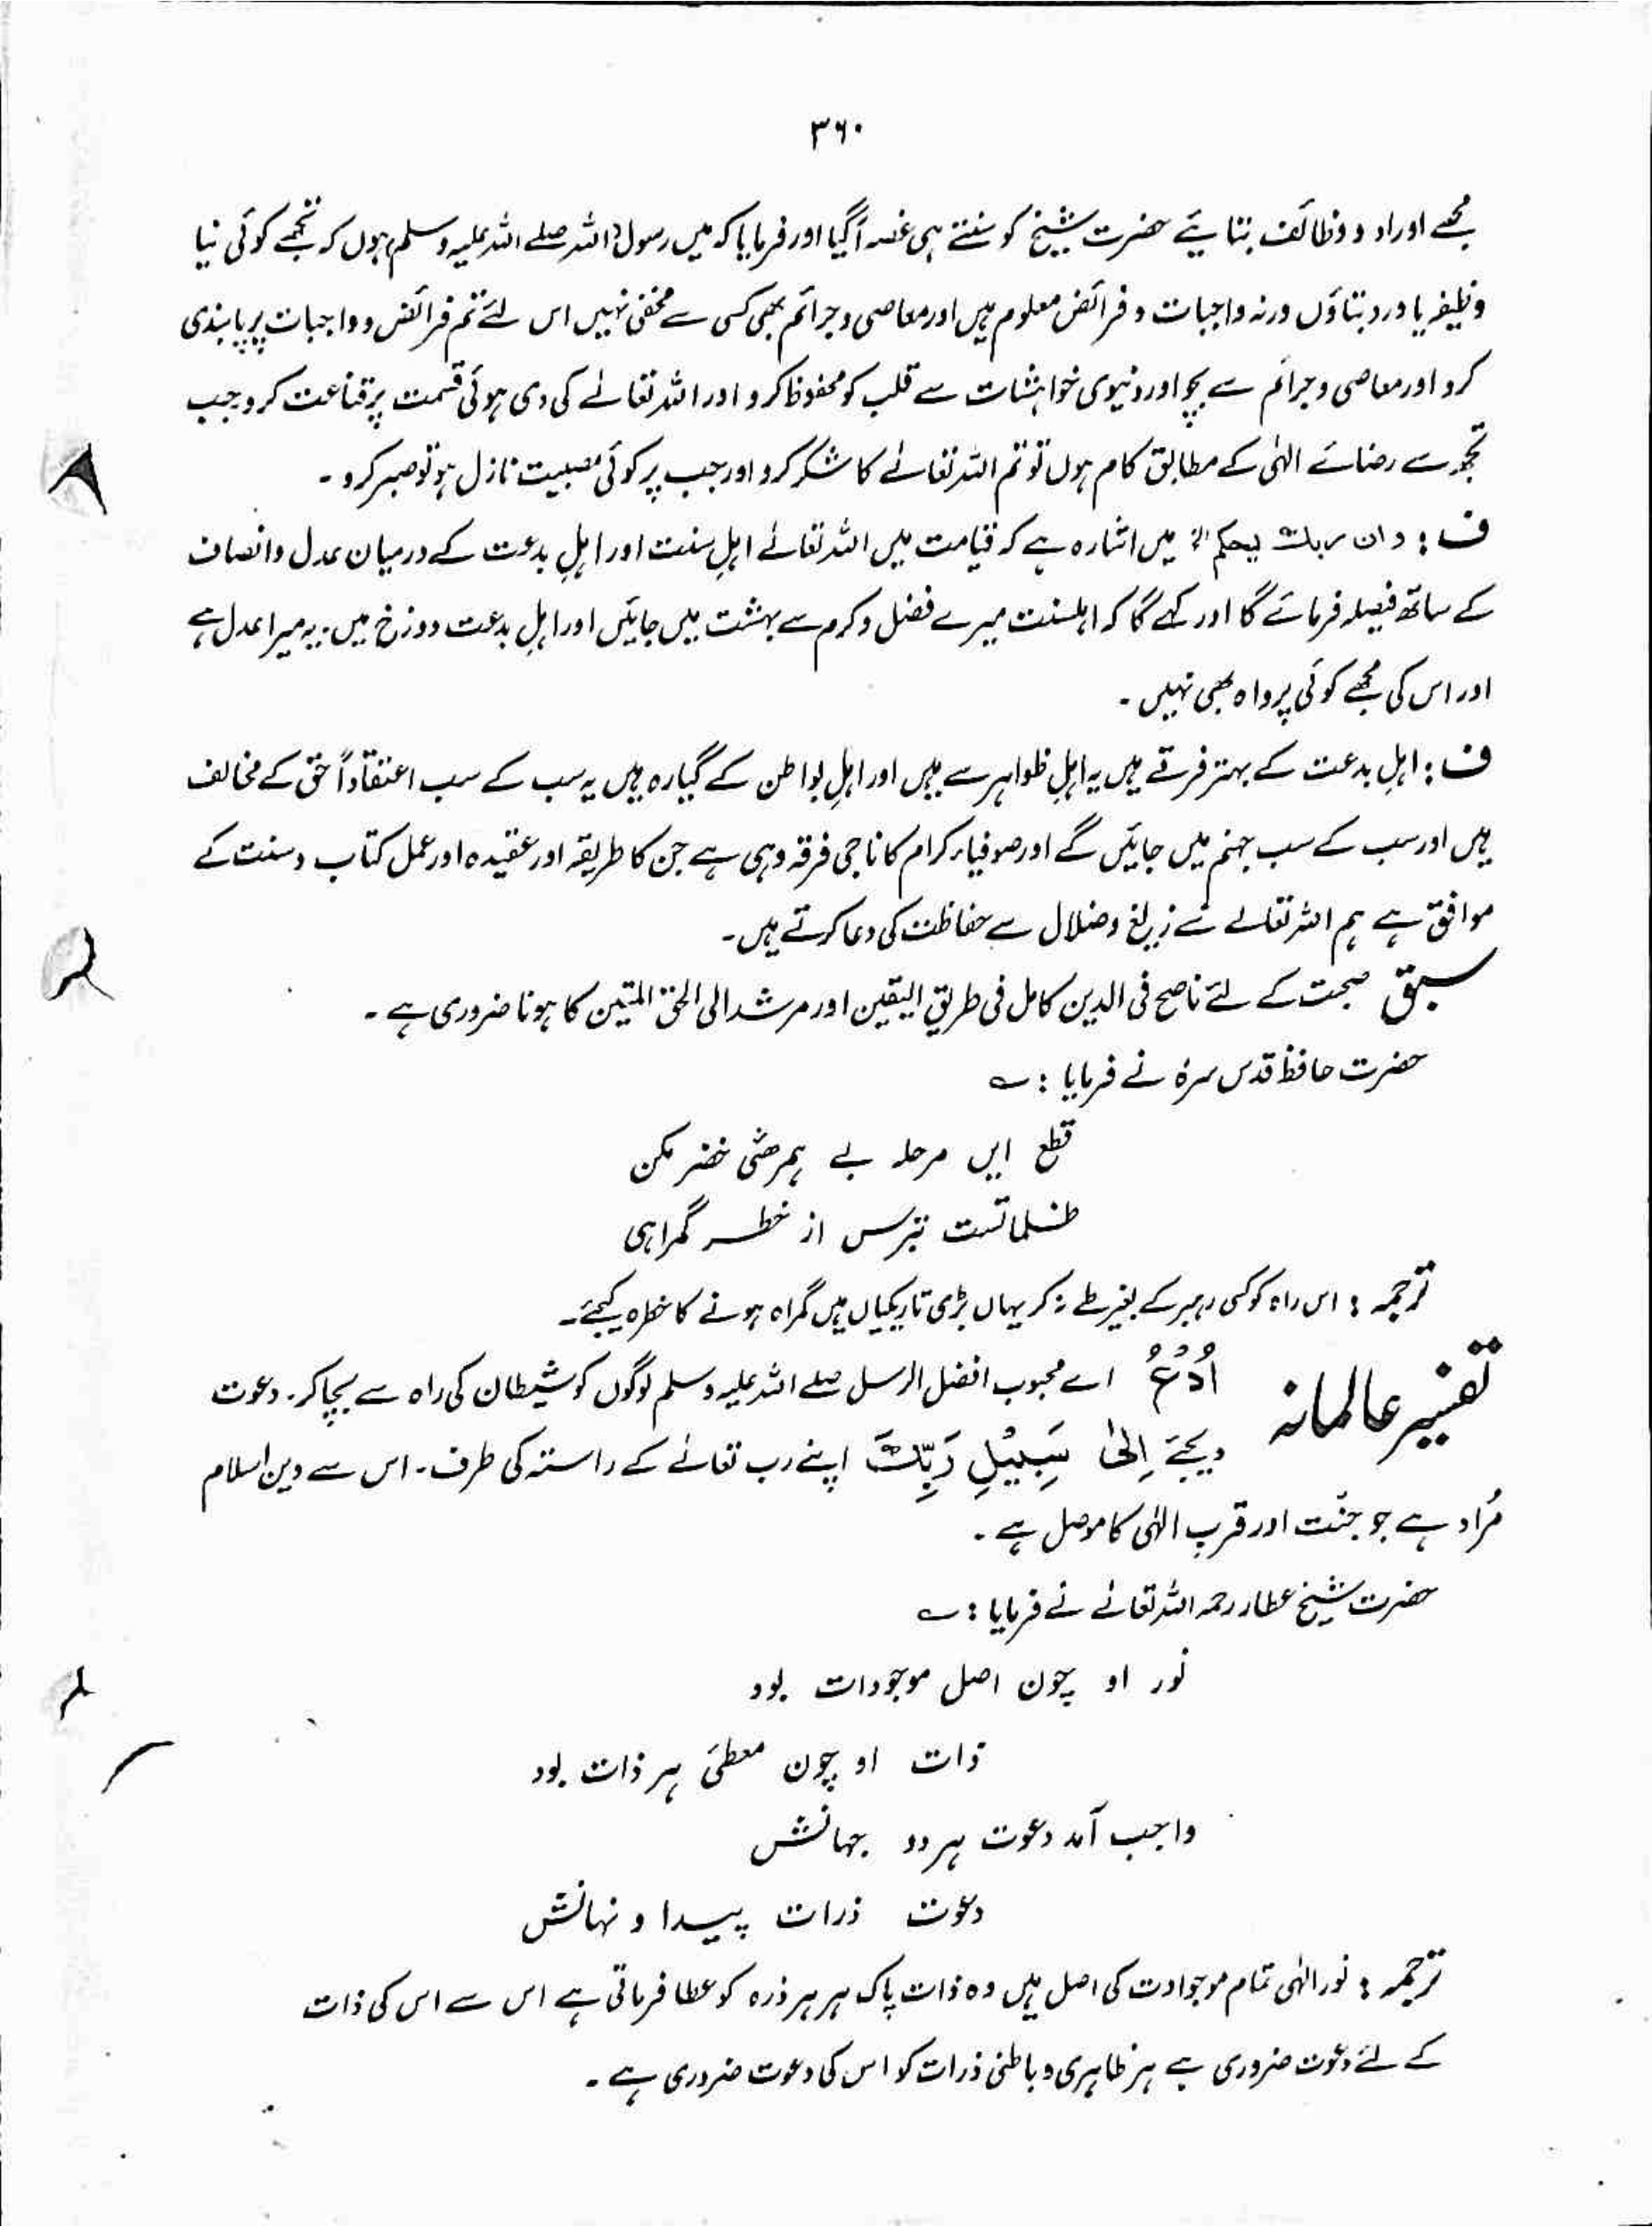 ۳۶۰
مجھے اوراد و وظائف بتایئے حضرت شیخ کو سنتے ہی غصہ آگیا اور فرمایا کہ میں رسول اللہ صلے اللہ علیہ وسلم ہوں کہ تجھے کوئی نیا
وظیفہ یا ورد بتاؤں ورنہ واجبات و فرائض معلوم ہیں اور معاصی و جرائم بھی کسی سے مخفی نہیں اس لئے تم فرائض و واجبات پر پابندی
کرو اور معاصی و جرائم سے بچو اور دنیوی خواہشات سے قلب کو محفوظ کرو اور اللہ تعالےٰ کی دی ہوئی قسمت پر قناعت کرو جب
تجھ سے رضائے الہٰی کے مطابق کام ہوں تو تم اللہ تعالےٰ کا شکر کرو اور جب پر کوئی مصیبت نازل ہو تو صبر کرو ۔
ف : وان ربك ليحكم الخ میں اشارہ ہے کہ قیامت میں اللہ تعالےٰ اہلِ سنت اور اہلِ بدعت کے درمیان عدل وانصاف
کے ساتھ فیصلہ فرمائے گا اور کہے گا کہ اہلسنت میرے فضل و کرم سے بہشت میں جائیں اور اہلِ بدعت دوزخ میں. یہ میرا عدل ہے
اور اس کی مجھے کوئی پرواہ بھی نہیں ۔
ف : اہلِ بدعت کے بہتر فرقے ہیں یہ اہلِ ظواہر سے ہیں اور اہلِ بواطن کے گیارہ ہیں یہ سب کے سب اعتقاداً حق کے مخالف
ہیں اور سب کے سب جہنم میں جائیں گے اور صوفیاء کرام کا ناجی فرقہ وہی ہے جن کا طریقہ اور عقیدہ اور عمل کتاب و سنت کے
موافق ہے ہم اللہ تعالےٰ سے زیغ و ضلال سے حفاظت کی دعا کرتے ہیں۔
سبق صحبت کے لئے ناصح فی الدین کامل فی طریق الیقین اور مرشد الی الحق المتین کا ہونا ضروری ہے ۔
حضرت حافظ قدس سرہٗ نے فرمایا : ؎
قطع ایں مرحلہ بے ہمرہئی خضر مکن
ظلماتست بترس از خطر گمراہی
ترجمہ : اس راہ کو کسی رہبر کے بغیر طے نہ کر یہاں بڑی تاریکیاں ہیں گمراہ ہونے کا خطرہ کیجئے۔
تفسیر عالمانہ اُدْعُ اے محبوب افضل الرسل صلے اللہ علیہ وسلم لوگوں کو شیطان کی راہ سے بچا کر. دعوت
دیجئے اِلیٰ سَبِیْلِ رَبِّكَ اپنے رب تعالےٰ کے راستہ کی طرف۔ اس سے دین اسلام
مُراد ہے جو جنّت اور قربِ الہٰی کا موصل ہے ۔
حضرت شیخ عطار رحمہ اللہ تعالےٰ نے فرمایا : ؎
نور او چون اصل موجودات بود
ذات او چون معطیٔ ہر ذات بود
واجب آمد دعوت ہر دو جہانش
دعوت ذرات پیدا و نہانش
ترجمہ : نور الہٰی تمام موجوادت کی اصل ہیں وہ ذات پاک ہر ہر ذرہ کو عطا فرماتی ہے اس سے اس کی ذات
کے لئے دعوت ضروری ہے ہر ظاہری و باطنی ذرات کو اس کی دعوت ضروری ہے ۔